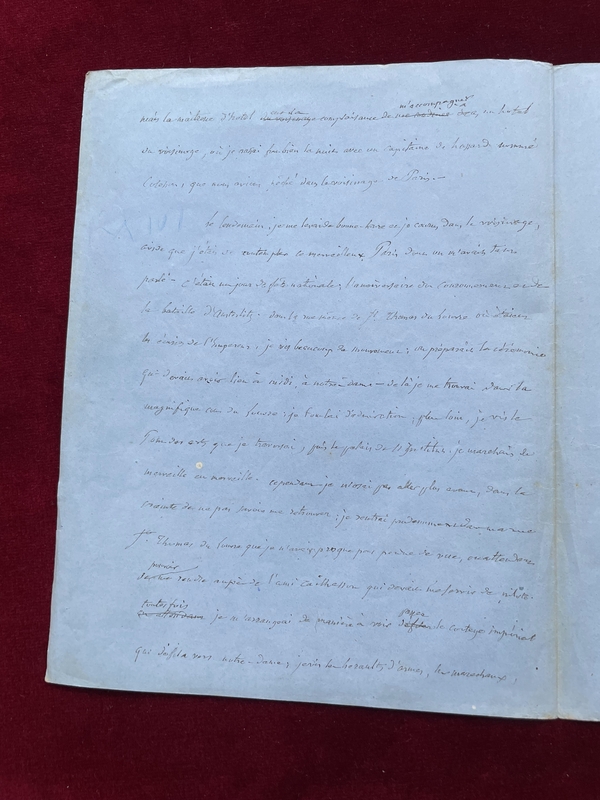 mais la maîtresse d'hotel eut la complaisance de m'accompagner un hotel
du voisinage, où je passai fort bien la nuit avec un capitaine de hazard nommé
que nous avions dans le voisinage de Paris.
Le lendemain, je me levai de bonne heure et je courus dans le voisinage,
avide que j'étais de contempler ce merveilleux Paris dont on m'avait tant
parlé. C'était un jour de fête nationale; l'anniversaire du Couronnement et de
la bataille d'Austerlitz. dans la rue même de St. Thomas du Louvre où étaient
les écuries de l'Empereur, je vis beaucoup de mouvement; on préparait la cérémonie
qui devait avoir lieu à midi, à notre dame. de là je me trouvai dans la
magnifique cour du Louvre; je tombai d'admiration, plus loin, je vis le
Pont des arts que je traversai, puis le palais de l'Institut: je marchais de
merveille en merveille. cependant je n'osai pas aller plus avant, dans la
crainte de ne pas savoir me retrouver; je rentrai prudemment dans ma rue
St. Thomas du Louvre que je n'avais presque pas perdue de vue, en attendant
de rendre auprès de l'ami qui devait me servir de pilote.
toutes fois je m'arrangeai de manière à voir passer le cortège impérial
qui défila vers notre-dame; je vis les héraults d'armes, les maréchaux,